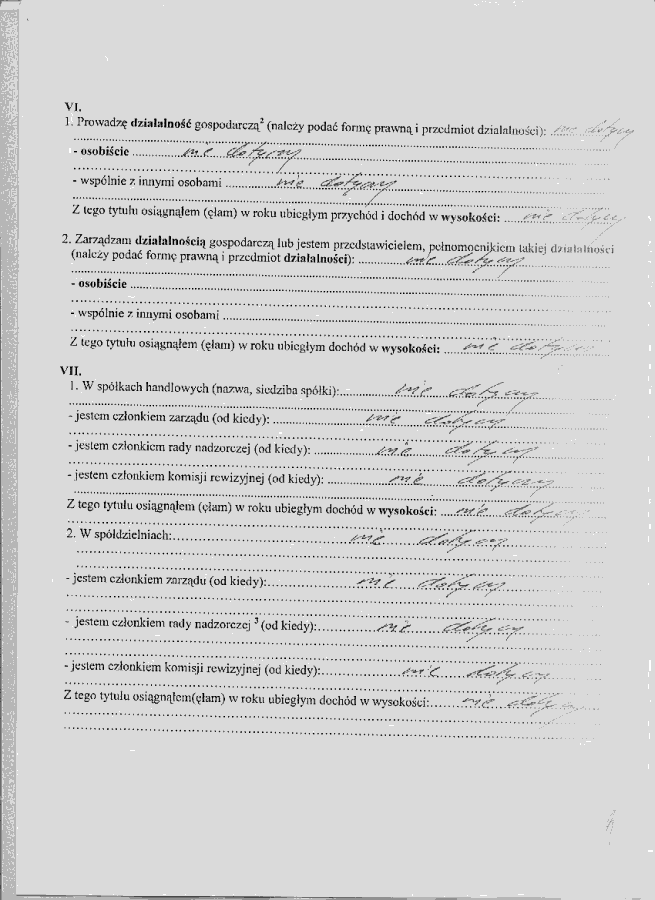 VI.
1. Prowadzę działalność gospodarczą² (należy podać formę prawną i przedmiot działalności): nie dotyczy
- osobiście nie dotyczy
- wspólnie z innymi osobami nie dotyczy
Z tego tytułu osiągnąłem (ęłam) w roku ubiegłym przychód i dochód w wysokości: nie dotyczy
2. Zarządzam działalnością gospodarczą lub jestem przedstawicielem, pełnomocnikiem takiej działalności
(należy podać formę prawną i przedmiot działalności): nie dotyczy
- osobiście
- wspólnie z innymi osobami
Z tego tytułu osiągnąłem (ęłam) w roku ubiegłym dochód w wysokości: nie dotyczy
VII.
1. W spółkach handlowych (nazwa, siedziba spółki): nie dotyczy
- jestem członkiem zarządu (od kiedy): nie dotyczy
- jestem członkiem rady nadzorczej (od kiedy): nie dotyczy
- jestem członkiem komisji rewizyjnej (od kiedy): nie dotyczy
Z tego tytułu osiągnąłem (ęłam) w roku ubiegłym dochód w wysokości: nie dotyczy
2. W spółdzielniach: nie dotyczy
- jestem członkiem zarządu (od kiedy): nie dotyczy
- jestem członkiem rady nadzorczej ³ (od kiedy): nie dotyczy
- jestem członkiem komisji rewizyjnej (od kiedy): nie dotyczy
Z tego tytułu osiągnąłem(ęłam) w roku ubiegłym dochód w wysokości: nie dotyczy